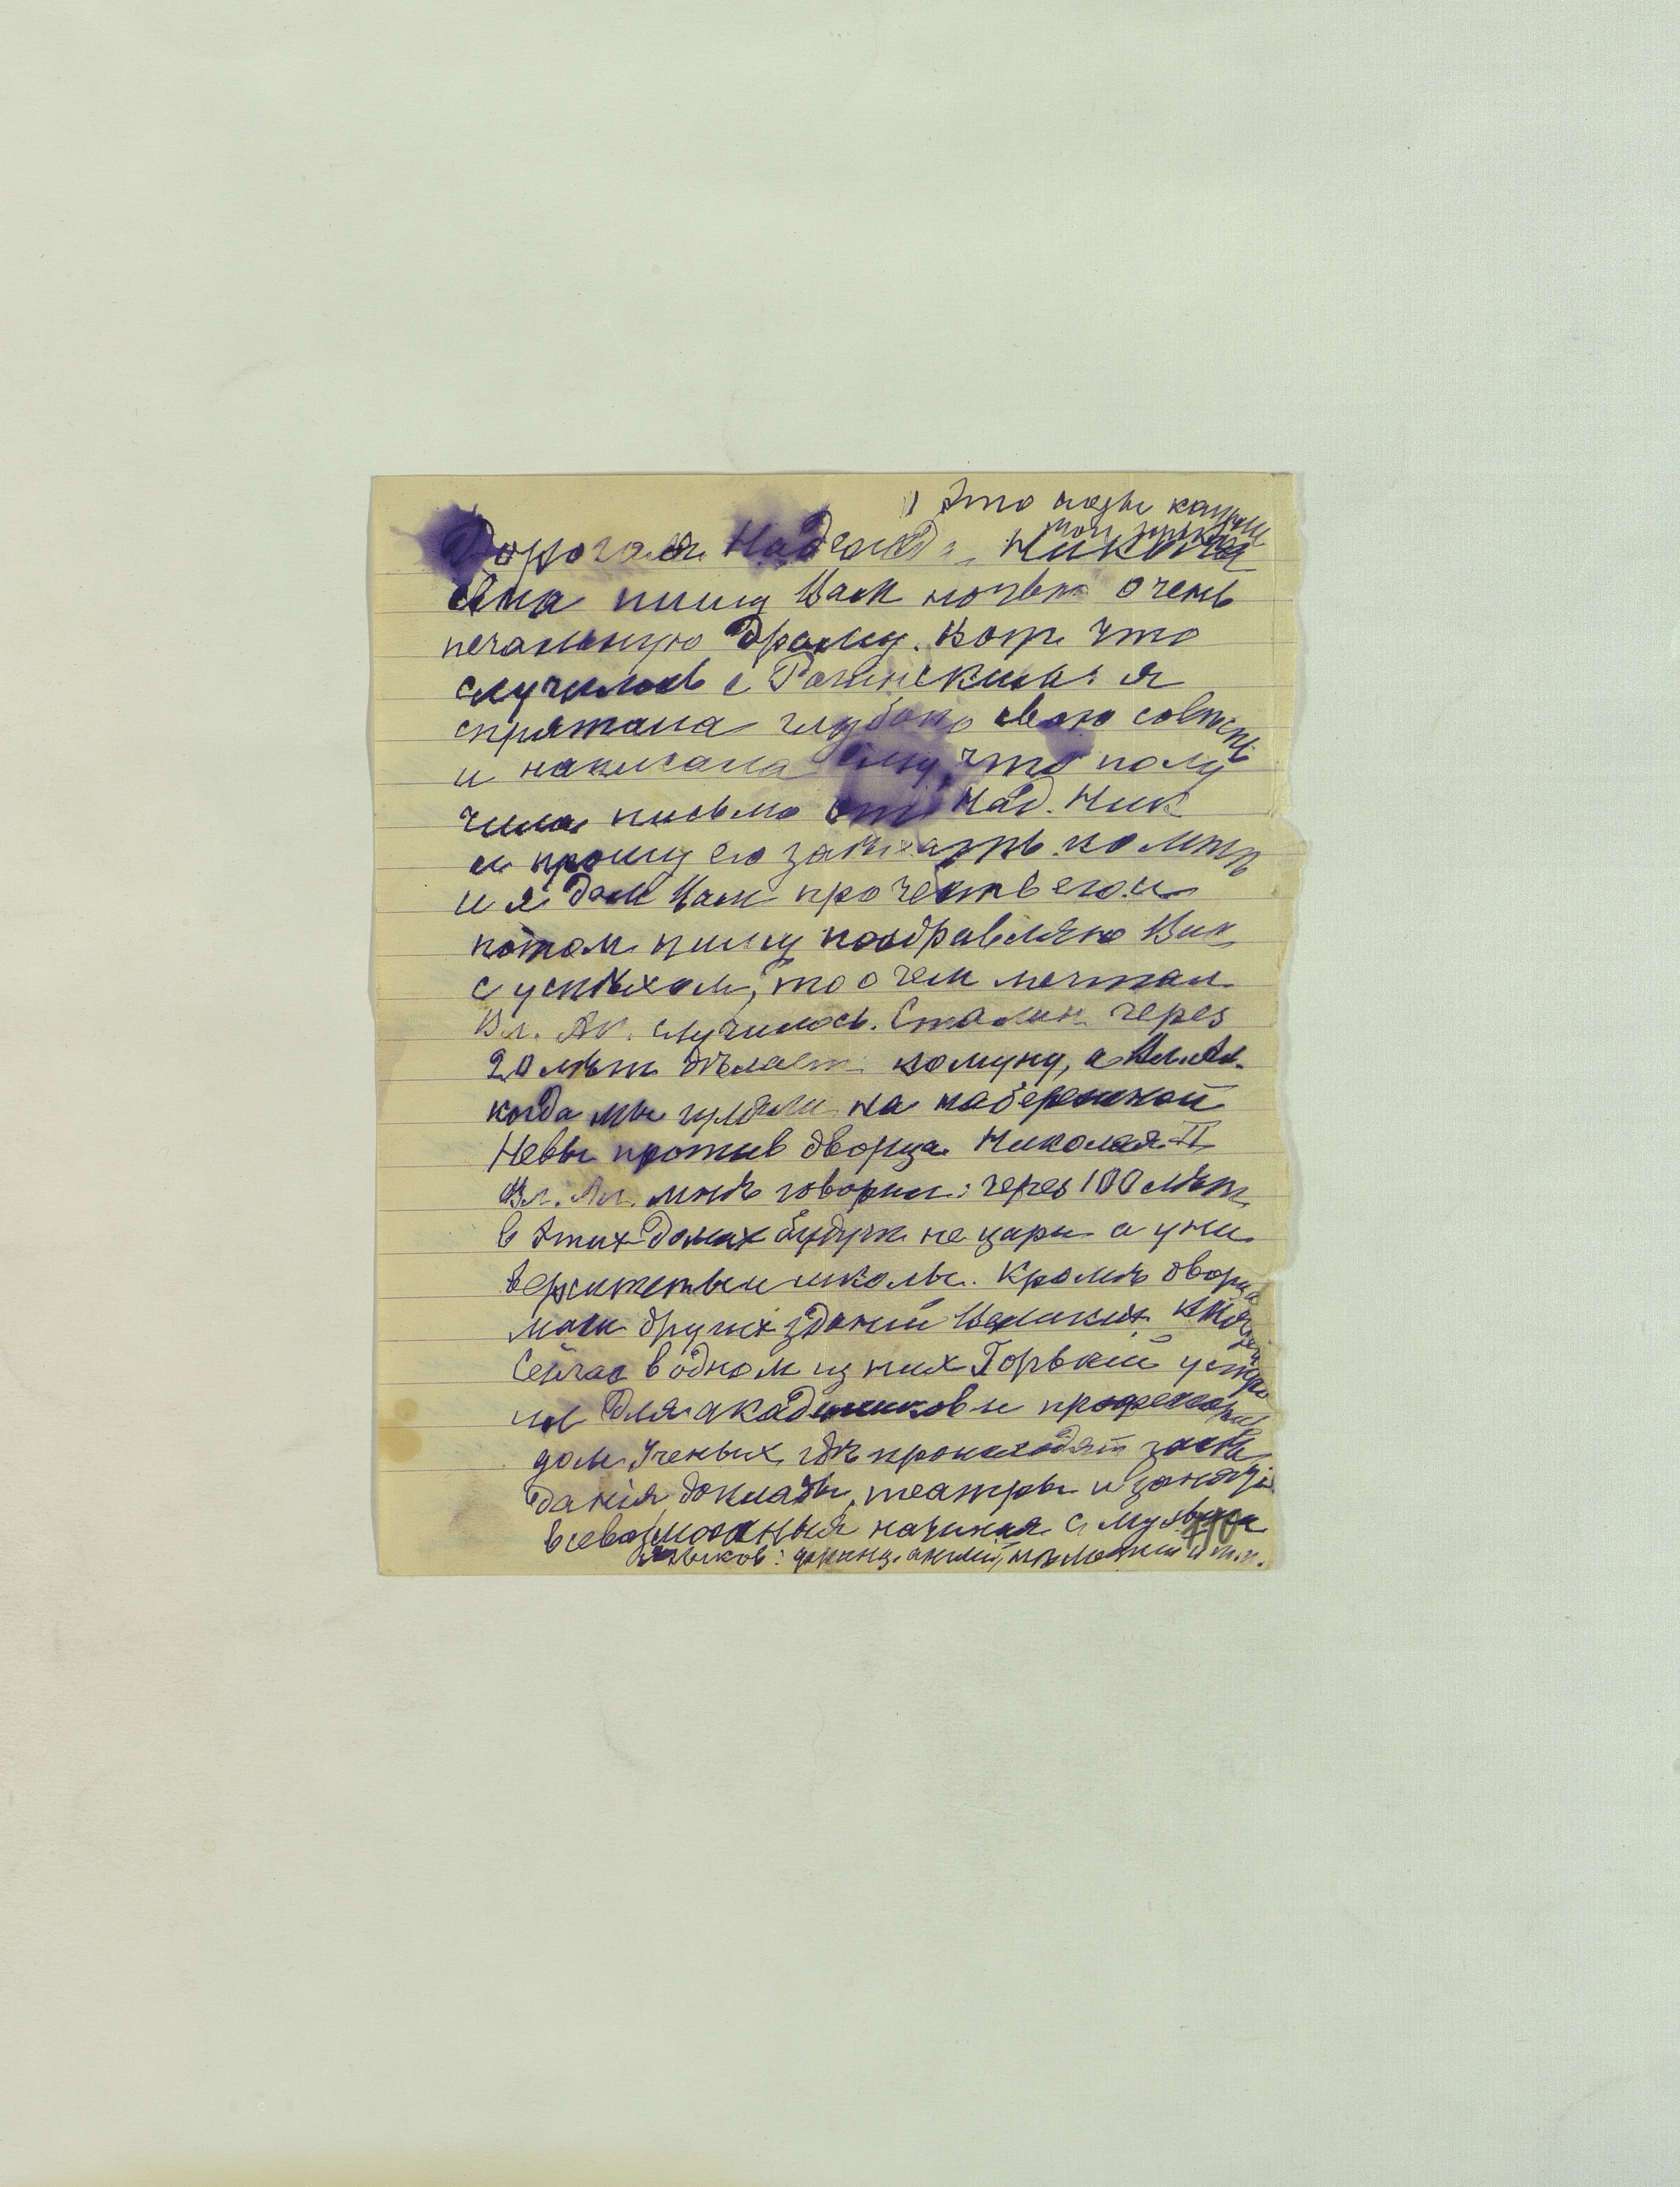 1) Это
Дорогая Надежда Никола
евна пишу Вам ночью очень
печальную драму. Вот что
случилось с я
спрятала глубоко свою совесть
и написала ему, что полу
чила письмо от Над. Ник
и прошу его заѣхать ко мнѣ
и я дам Вам прочесть его и
потом пишу поздравляю Вик
с успѣхом, то о чем мечтал
Вл. Ал. случилось. Сталин через
20 лѣт дѣлает комуну, а Вл. Ал.
когда мы гуляли на набережной
Невы против дворца Николая II
Вл. Ал. мнѣ говорил: через 100 лѣт
в этих домах будут не цари а уни
верситеты и школы. Кромѣ дворца
масса других зданий Великих Князей
Сейчас в одном из них Горький устро
ил для академиков и професоров
дом Ученых, гдѣ происходят засѣ
данія, доклады, театры и занятія
всевозможныя начиная с музыки
языков: француз. англий, нѣмецкий и т.п.